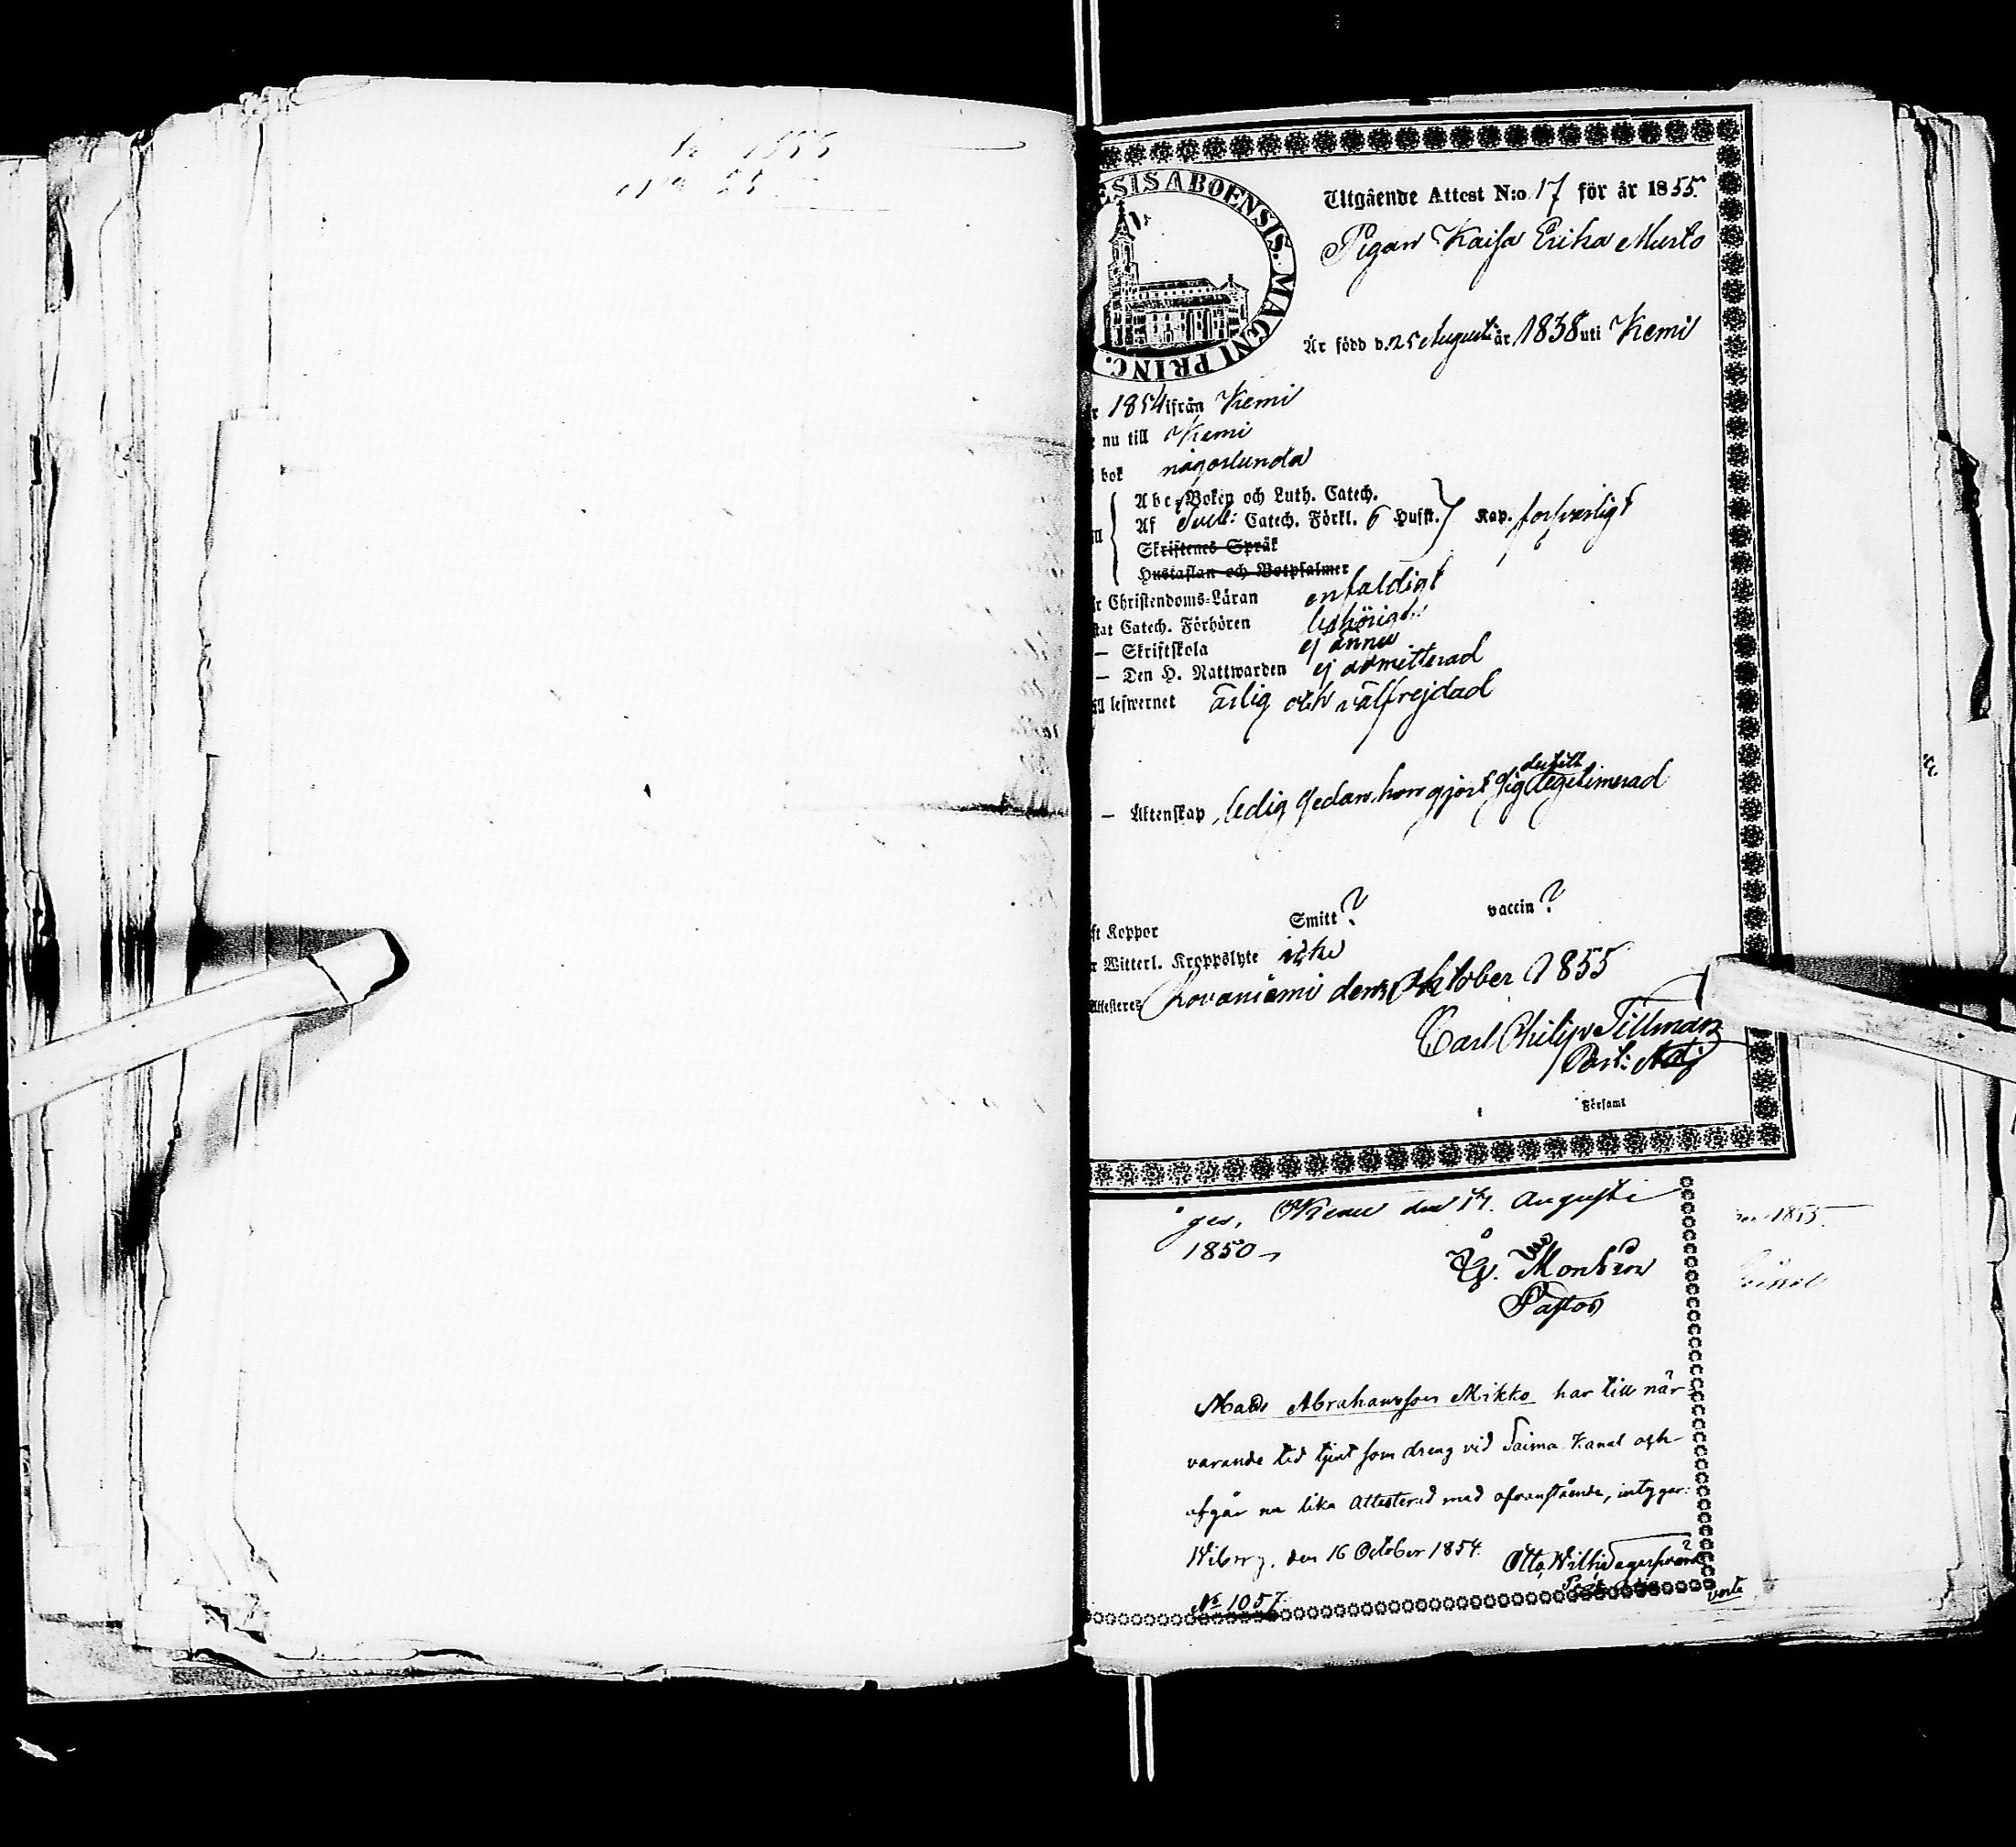 ESIS ABOENSIS. MAGNI PRINC.
Utgående Attest N:o 17 för år 1855.
Pigan Kaisa Erika Murto
Är född d. 25 Augusti år 1838 uti Kemi
r 1854 ifrån Kemi
nu till Kemi
bok någorlunda
Abc-Boken och Luth. Catech.
Af Sveb: Catech. Förkl. 6 Hufst. Kap. försvarligt
Skriftenes Språk
Hustaflan och Botpsalmer
r Christendoms-Läran enfaldigt
tat Catech. Förhören behörigt
— Skriftskola ej ännu
— Den H. Nattwarden ej admitterad
ll lefwernet ärlig och välfrejdad
dertill
— Äktenskap, ledig sedan hon gjort sig legitimerad
ft Koppor Smitt? vaccin?
r Witterl. Kroppslyte icke
Attesteras Rovaniemi den Oktober 1855
Carl Philip Tillman
Past: Adj
Församl
ges, den 17. Augusti
1850
Pastor
Mads Abrahamsson Mikko har till när-
varande tid tjent som dreng vid Saima Kanal och
afgår nu lika Attesterad med ofvanstående, intygar:
Wiborg, den 16 October 1854. Otto Wilh
No 1057.
verte
1855.